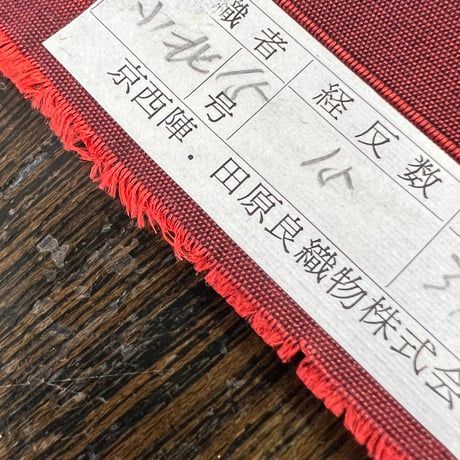 織者 経反数
小北 15号 15
京西陣・田原良織物株式会